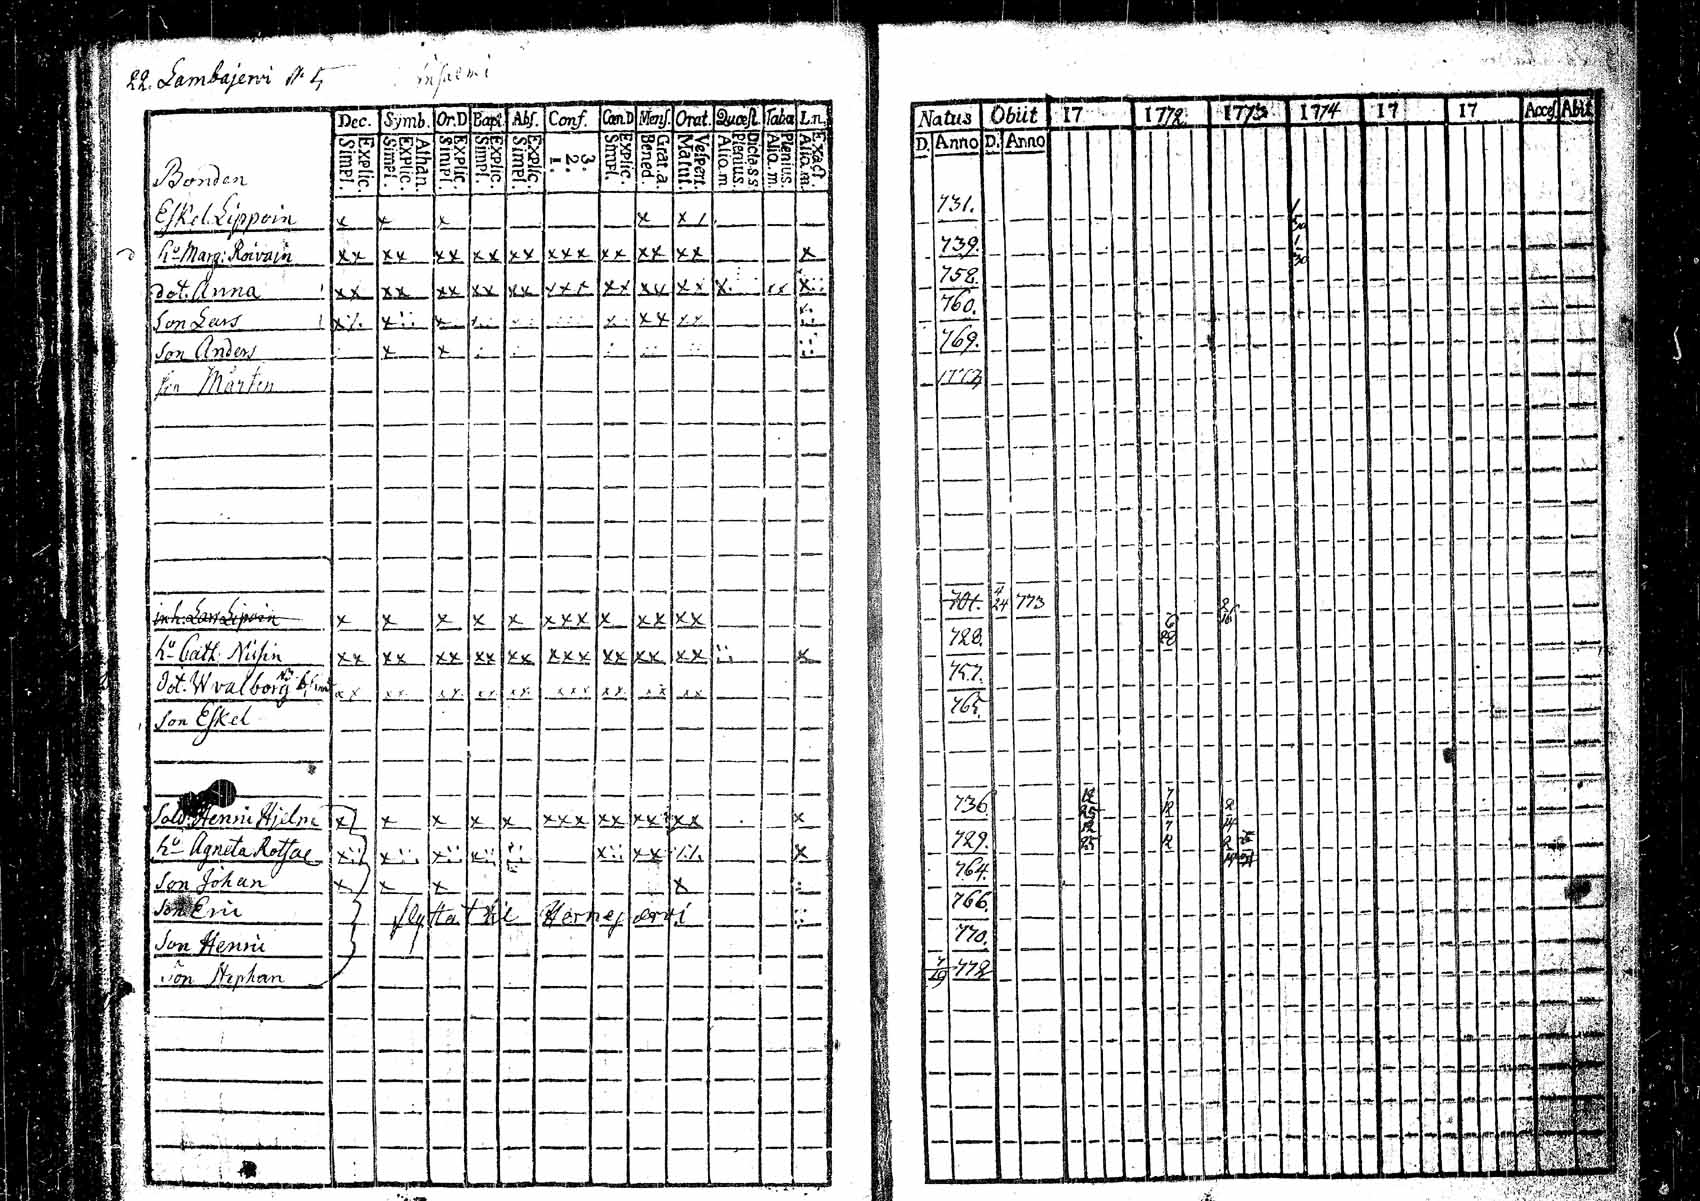 22. Lambajerwi No 5
Dec. Symb. Or.D Bapt. Abs. Conf. Cœn.D Mens. Orat. Quæst. Taba L.n.
Explic. Simpl. Athan. Explic. Simpl. Explic. Simpl. Explic. Simpl. Explic. Simpl. 3. 2. 1. Explic. Simpl. Grat.a. Bened. Vespert. Matut. Dicta.s.s Plenius. Aliq.m Plenius. Aliq.m. Exact. Aliq.m.
Natus Obiit 17 1772 1773 1774 17 17 Acces. Abiit
D. Anno D. Anno
Bonden
Eskel Lippoin x x x x x 731.
hu Marg: Roivain xx xx xx xx xx xxx xx xx xx x 739.
dot. Anna xx xx xx xx xx xxx xx xx xx x xx x 758.
Son Lars 760.
Son Anders x x 769.
son Mårten
inh. Lars Lipoin x x x x x xxx x xx xx 701. 4/24 773
hu Cath: Nisin xx xx xx xx xx xxx xx xx xx x 728. 6/28
dot. Wvalborg xx xx xx xx xx xxx xx xx xx 757.
Son Eskel 765.
Sold. Henric Hjelm x x x x x xxx xx xx xx x 736 12/25 7/12
hu Agneta Rotsae 729. 12/25 7/12
Son Johan x x x x 764.
Son Eric flyttat til Hernejerwi 766.
Son Henric 770.
Son Stephan 772